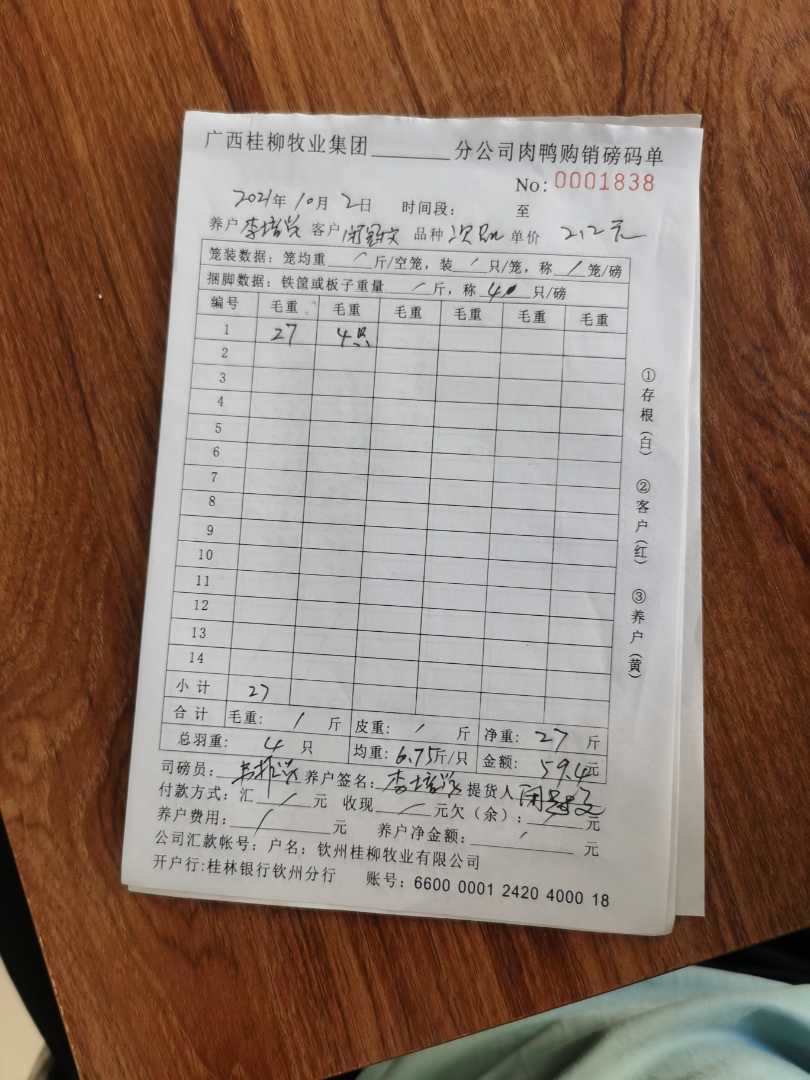 广西桂柳牧业集团________分公司肉鸭购销磅码单
No: 0001838
2021年10月2日 时间段: 至
养户 李培 客户 品种 单价 2.2元
笼装数据: 笼均重 / 斤/空笼, 装 / 只/笼, 称 / 笼/磅
捆脚数据: 铁筐或板子重量 / 斤, 称 4 只/磅
编号 毛重 毛重 毛重 毛重 毛重 毛重
1 27 4只
2
3
4
5
6
7
8
9
10
11
12
13
14
小计 27
合计 毛重: / 斤 皮重: / 斤 净重: 27 斤
总羽重: 4 只 均重: 6.75斤/只 金额: 59.4元
司磅员: 养户签名: 李培 提货人
付款方式: 汇 / 元 收现 / 元欠(余): / 元
养户费用: / 元 养户净金额: / 元
公司汇款帐号: 户名: 钦州桂柳牧业有限公司
开户行:桂林银行钦州分行 账号: 6600 0001 2420 4000 18
①存根(白) ②客户(红) ③养户(黄)